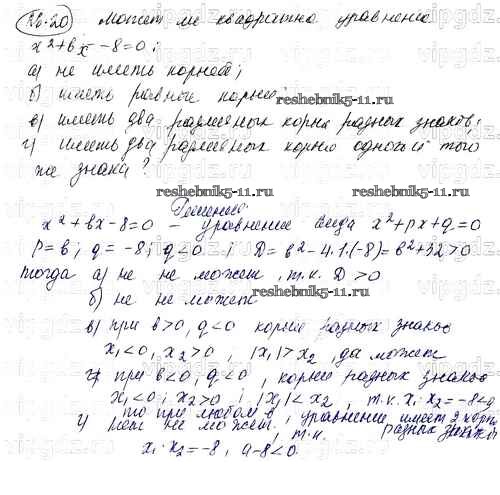 26.20 Может ли квадратное уравнение
x²+bx-8=0;
а) не иметь корней;
б) иметь равные корни;
reshebnik5-11.ru
в) иметь два различных корня разных знаков;
г) иметь два различных корня одного и того
же знака?
reshebnik5-11.ru
Решение
x²+bx-8=0 – уравнение вида x²+px+q=0
p=b; q=-8; q<0; D=b²-4·1·(-8)=b²+32>0
тогда а) не не может, т.к. D>0
reshebnik5-11.ru
б) не не может
в) при b>0, q<0 корни разных знаков
x₁<0, x₂>0; |x₁|>x₂, да может
г) при b<0; q<0, корни разных знаков
x₁<0; x₂>0; |x₁|<x₂, т.к. x₁·x₂=-8<0
то при любом b, уравнение имеет 2 корня
разных знаков
г) нет не может, т.к.
x₁·x₂=-8, а -8<0.